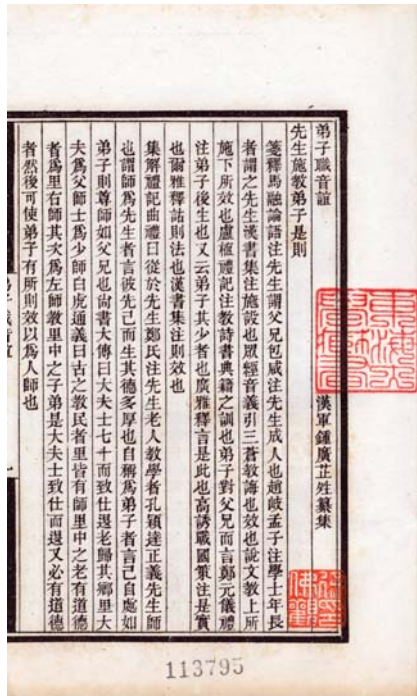 弟子職音誼
漢軍鍾廣芷姓纂集
先生施教弟子是則
箋釋馬融論語注先生謂父兄包咸注先生成人也趙岐孟子注學士年長
者謂之先生漢書集注施設也眾經音義引三蒼教誨也效也說文教上所
施下所效也盧植禮記注教詩書典籍之訓也弟子對父兄而言鄭元儀禮
注弟子後生也又云弟子其少者也廣雅釋言是此也高誘戰國策注是實
也爾雅釋詁則法也漢書集注則效也
集解禮記曲禮曰從於先生鄭氏注先生老人教學者孔穎達正義先生師
也謂師為先生者言彼先己而生其德多厚也自稱為弟子者言己自處如
弟子則尊師如父兄也尚書大傳曰大夫士七十而致仕還老歸其鄉里大
夫為父師士為少師白虎通義曰古之教民者里皆有師里中之老有道德
者為里右師其次為左師教里中之子弟是大夫士致仕而還又必有道德
者然後可使弟子有所則效以為人師也
113795